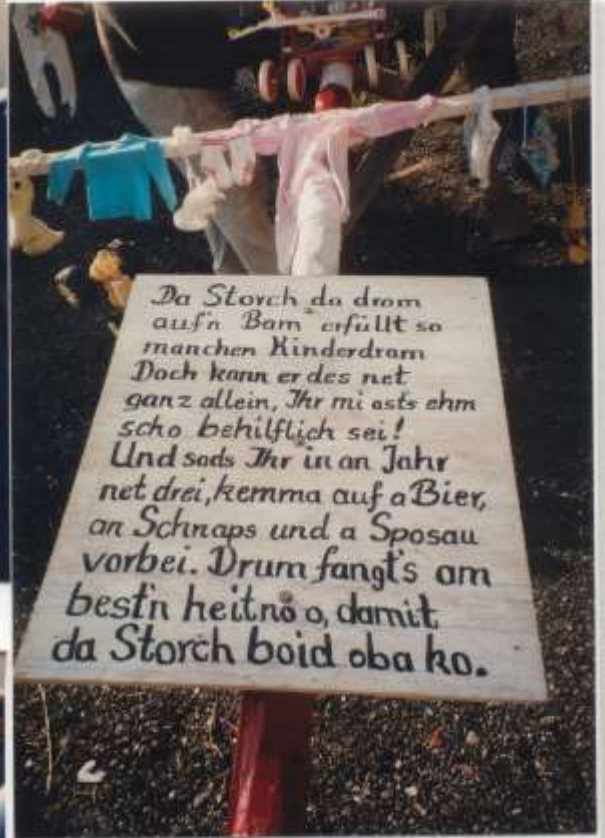 Da Storch do drom
auf'n Bam erfüllt so
manchen Kinderdram
Doch kann er des net
ganz allein, Ihr miasts ehm
scho behilflich sei!
Und sads Ihr in an Jahr
net drei, kemma auf a Bier,
an Schnaps und a Sposau
vorbei. Drum fangt's am
best'n heitno o, damit
da Storch boid oba ko.